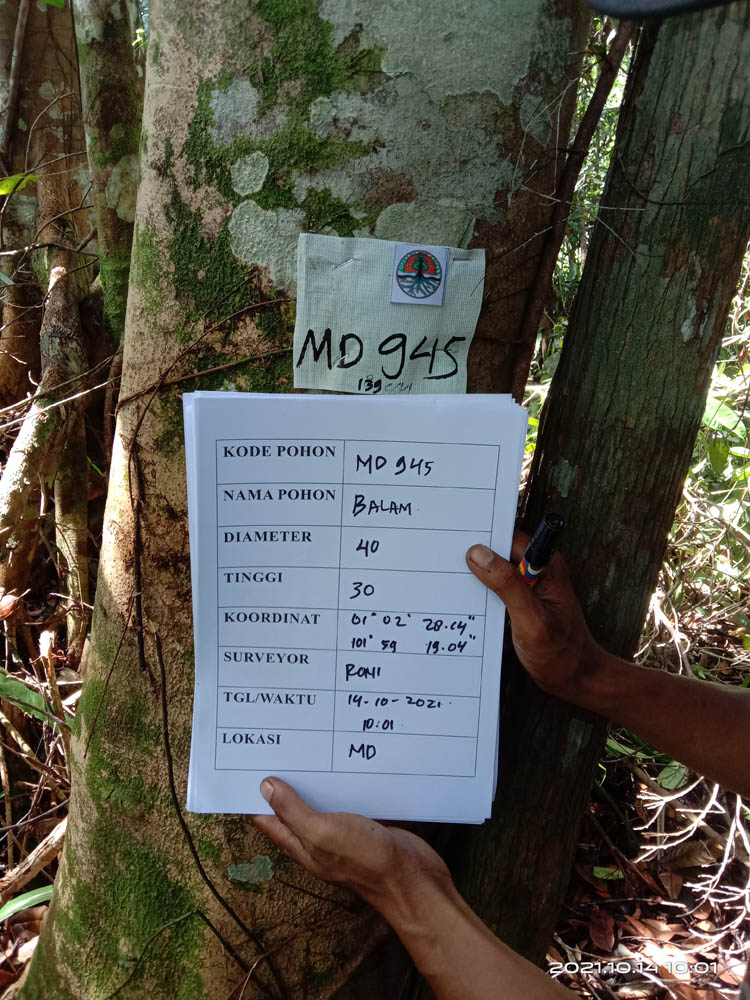 MD 945
139 cm
KODE POHON MD 945
NAMA POHON BALAM
DIAMETER 40
TINGGI 30
KOORDINAT 01° 02' 28.14"
101° 59 19.04"
SURVEYOR RONI
TGL/WAKTU 14-10-2021
10:01
LOKASI MD
2021.10.14 10:01